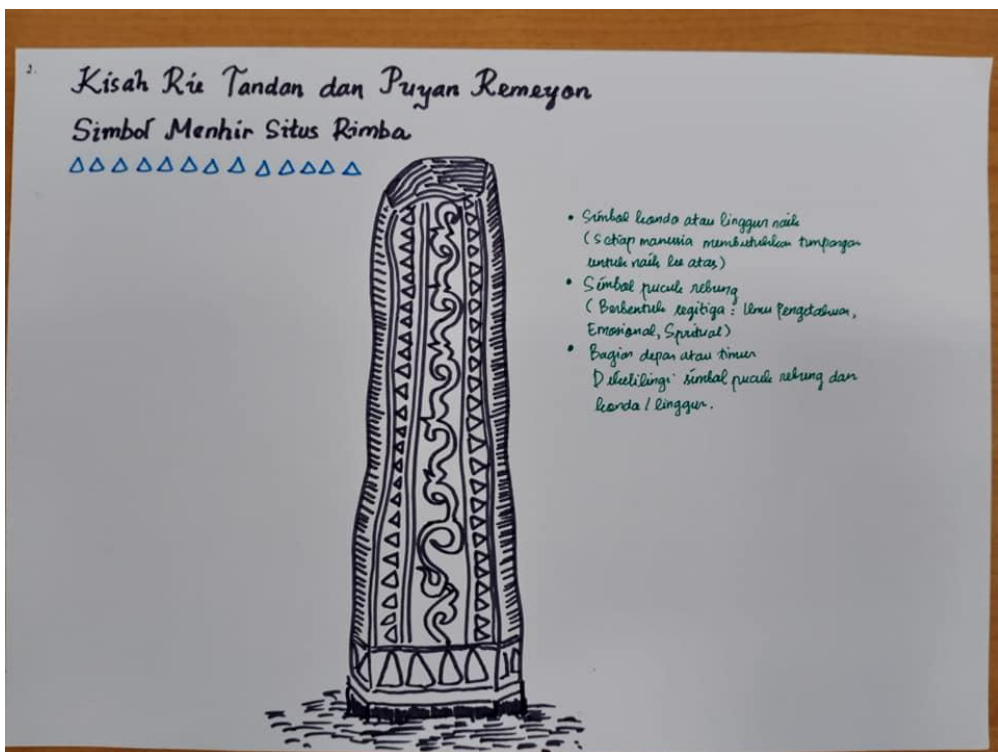 2.
Kisah Rie Tandan dan Puyan Remeyon
Simbol Menhir Situs Rimba
• Simbol kanda atau linggun naik
(Setiap manusia membutuhkan tumpangan
untuk naik ke atas)
• Simbol pucuk rebung
(Berbentuk segitiga: Ilmu Pengetahuan,
Emosional, Spritual)
• Bagian depan atau timur
Dikelilingi simbol pucuk rebung dan
kanda / linggun.